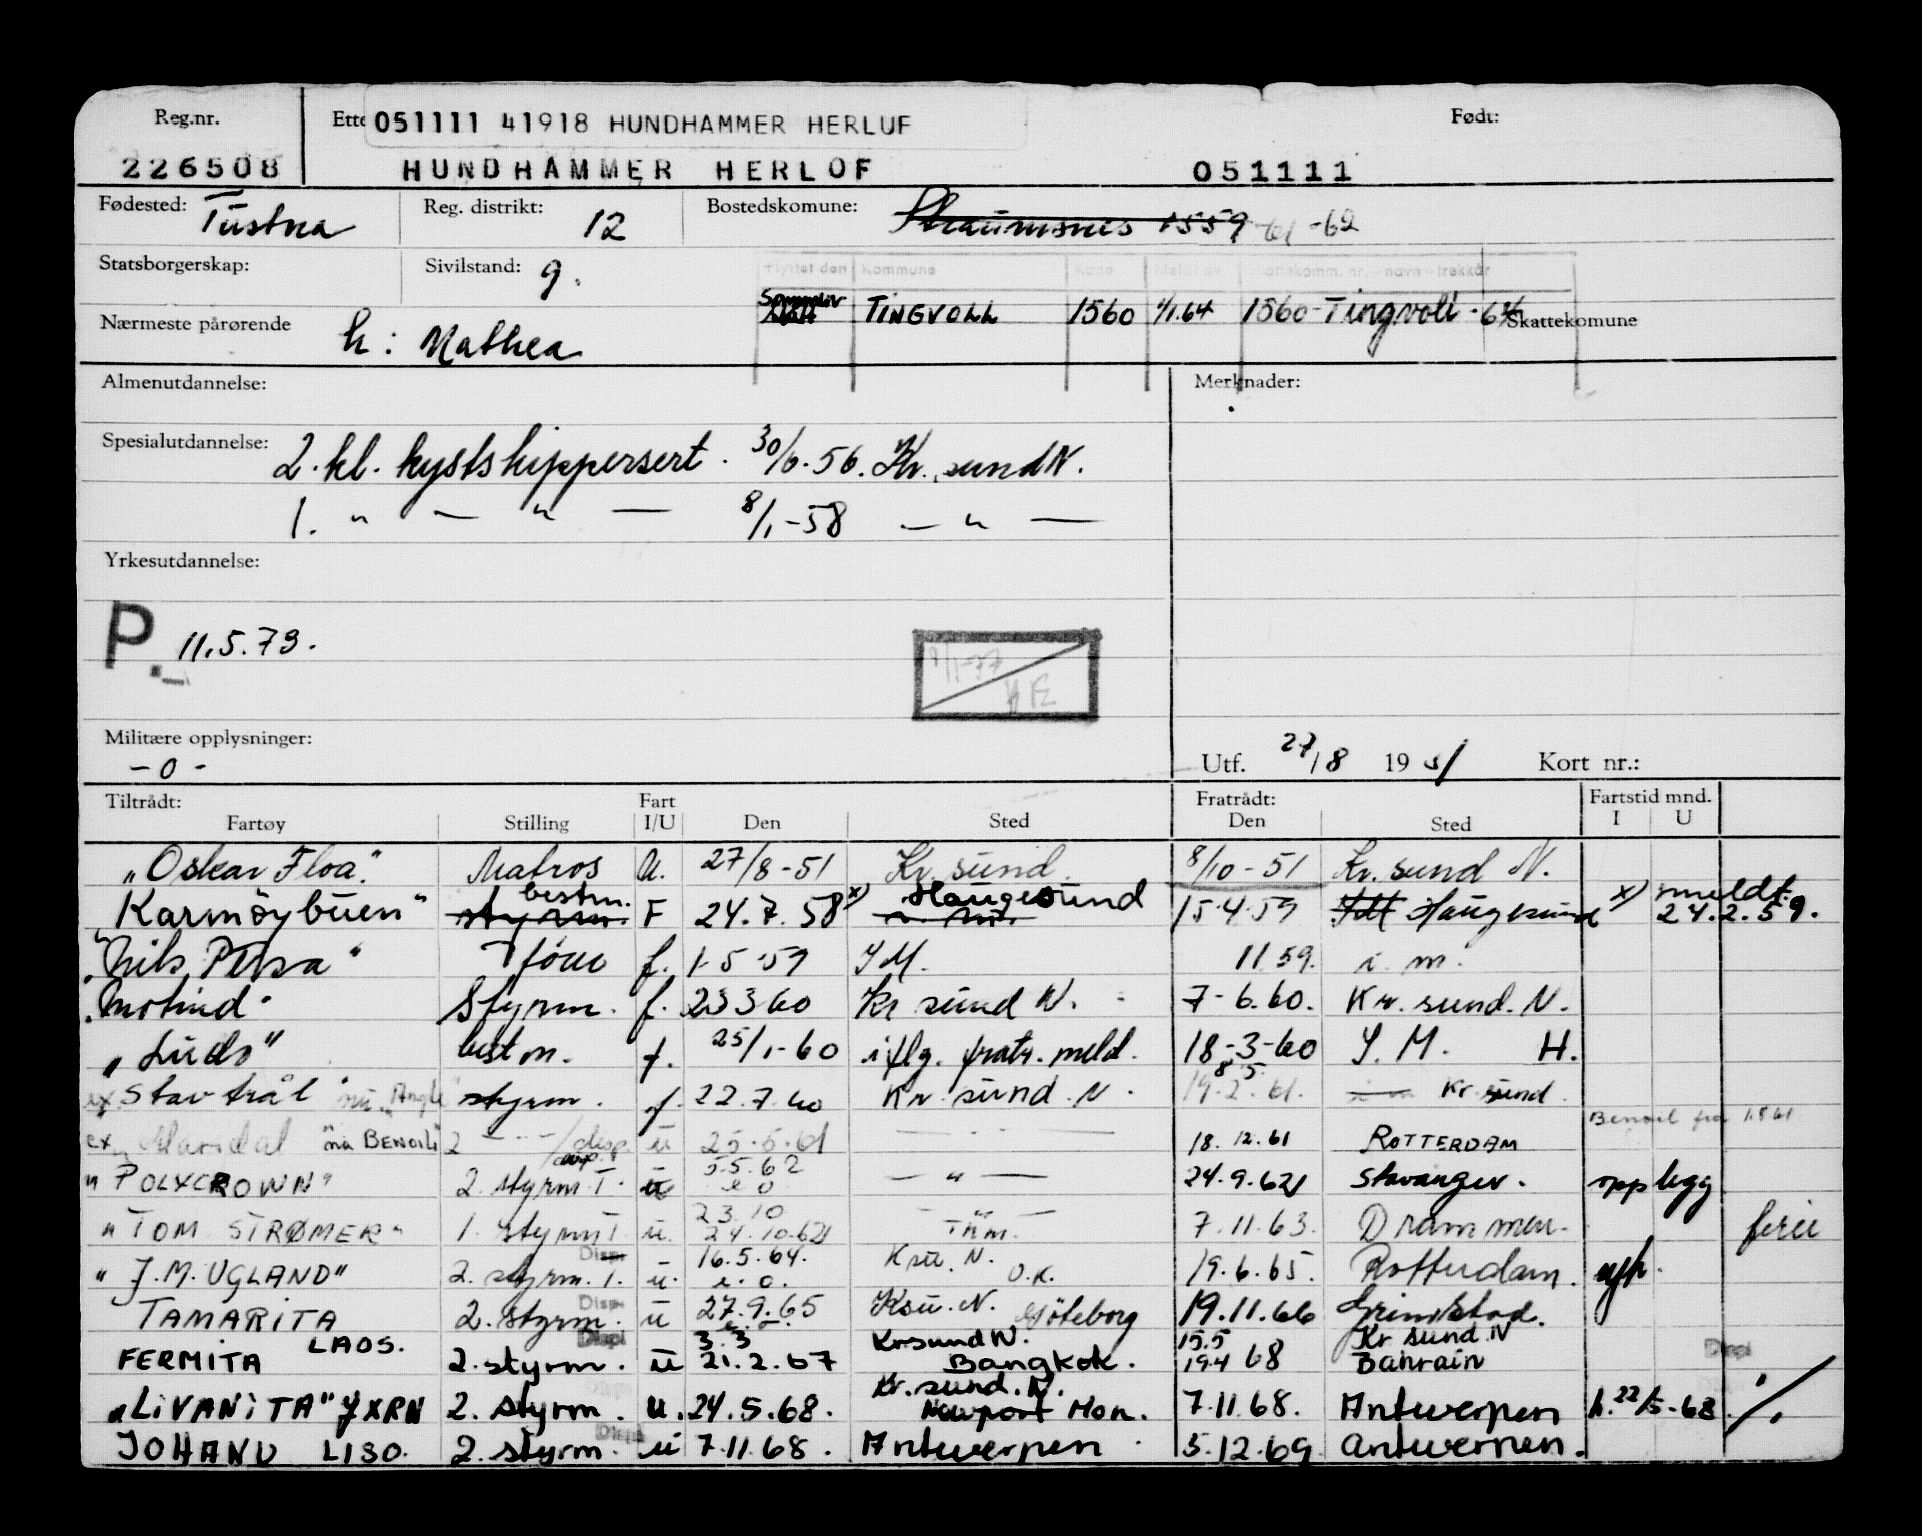 Reg.nr. Ette 051111 41918 HUNDHAMMER HERLUF Født:
226508 HUNDHAMMER HERLOF 051111
Fødested: Tustna Reg. distrikt: 12 Bostedskomune: Straumsnes 1559 -61 -62
Statsborgerskap: Sivilstand: g.
Flyttet den Kommune Kode Meldt av Skattekomm. nr. - navn - trekkår
TINGVOLL 1560 1/1.64 1560-Tingvoll - 64
Nærmeste pårørende h: Mathea Skattekomune
Almenutdannelse: Merknader:
Spesialutdannelse: 2. kl. kystskippersert. 30/6-56. Kr. sund N.
1. " — " — 8/1-58 — " —
Yrkesutdannelse:
P. 11.5.73.
Militære opplysninger:
- 0 -
Utf. 27/8 1951 Kort nr.:
Tiltrådt: Fart Fratrådt: Fartstid mnd.
Fartøy Stilling I/U Den Sted Den Sted I U
"Oskar Floa" Matros U. 27/8-51 Kr. sund. 8/10-51 Kr. sund N.
"Karmøybuen" styrm. bestm. F 24.7.58 x) Haugesund 15.4.59 Haugesund x) meldt. 24.2.59.
"Nils Petsa" f. 1-5-59 I M. 11.59. i. m.
Styrm. f. 23 3 60 Kr sund N. 7-6.60. Kr. sund. N.
"Ludo" best m. f. 25/1-60 iflg. fratr. meld. 18-3-60 I. M. H.
ex Stavtrål nu styrm. f. 22.7.60 Kr. sund. N. 8 5 19.2.61. Kr sund
ex Mandal "nå BENOIL" 2 — " — /disp. u 25.5.61 — " — 18.12.61 ROTTERDAM Benoil fra 1.8.61
"POLYCROWN" 2. styrm T. u 5.5.62 e o — " — 24.9.62 Stavanger. opplegg
"TOM STRØMER" 1. styrm T u. 23 10 24.10.62 — " — 7.11.63. Drammen. ferie
"J.M. UGLAND" 2. styrm. T. Disp. u. 16.5.64. e. o. Ksu. N. O.K. 19.6.65. Rotterdam.
TAMARITA 2. styrm. Disp. u 27.9.65 e. o. Ksu. N. Göteborg 19.11.66 Grimstad.
FERMITA LAOS. 2. styrm. Displ u 3.3 21.2.67 Krsund N. Bangkok. 15.5 19.4 68 Kr sund N Bahrain Displ
"LIVANITA" JXRN 2. styrm. u. 24.5.68. Kr. sund. N. Newport Mon. 7.11.68. Antwerpen h. 22/5-68 ./.
JOHANN LISO. 2. styrm. Displ u 7.11.68. Antwerpen 5.12.69 Antwerpen.